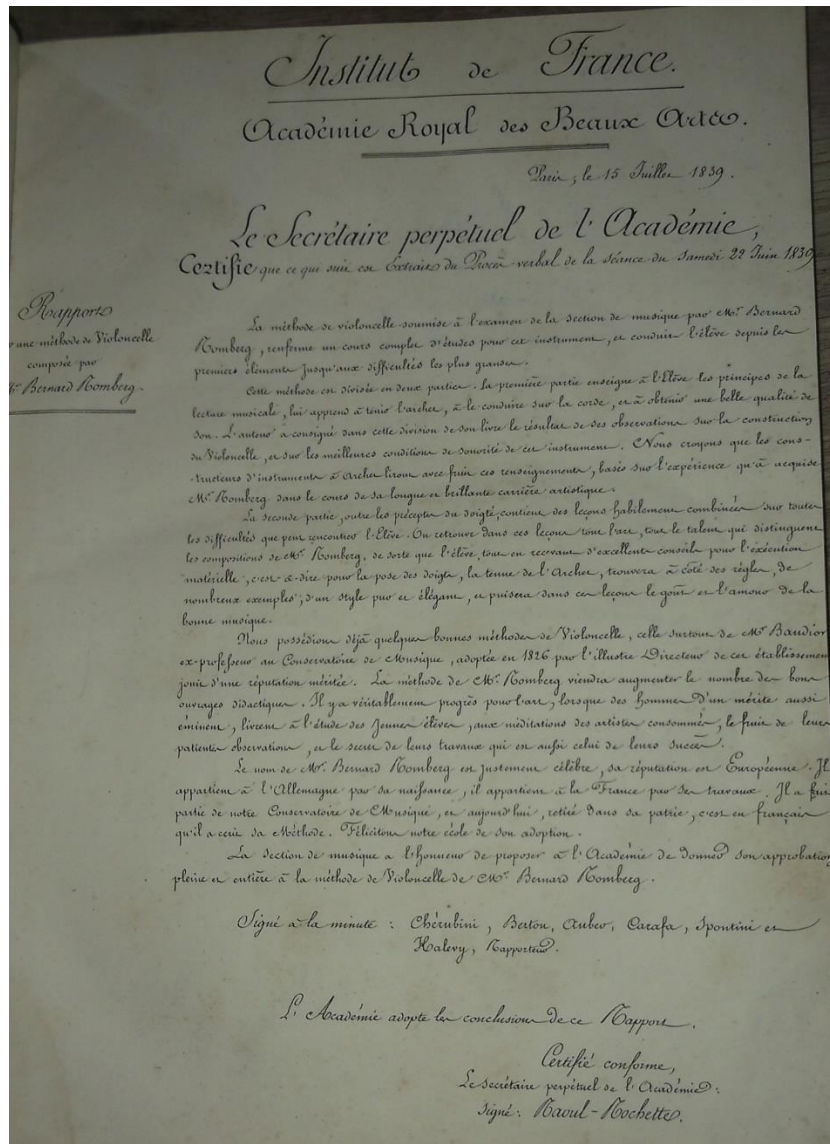 Institut de France.
Académie Royal des Beaux Arts.
Paris, le 15 Juillet 1839.
Le Secrétaire perpétuel de l'Académie,
Certifie que ce qui suit est Extrait du Procès-verbal de la séance du Samedi 22 Juin 1839
Rapport
une méthode de Violoncelle
composée par
Mr. Bernard Romberg.
La méthode de violoncelle soumise à l'examen de la section de musique par Mr. Bernard
Romberg, renferme un cours complet d'études pour cet instrument, et conduit l'élève depuis les
premiers éléments jusqu'aux difficultés les plus grandes.
Cette méthode est divisée en deux parties. La première partie enseigne à l'Elève les principes de la
lecture musicale, lui apprend à tenir l'archet, à le conduire sur la corde, et à obtenir une belle qualité de
son. L'auteur a consigné dans cette division de son livre le résultat de ses observations sur la construction
du Violoncelle, et sur les meilleures conditions de sonorité de cet instrument. Nous croyons que les cons-
-tructeurs d'instruments à Archet liront avec fruit ces renseignements, basés sur l'expérience qu'a acquise
Mr. Romberg dans le cours de sa longue et brillante carrière artistique.
La seconde partie, outre les préceptes du doigté, contient des leçons habilement combinées sur toutes
les difficultés que peut rencontrer l'Elève. On retrouve dans ces leçons tout l'art, tout le talent qui distinguent
les compositions de Mr. Romberg, de sorte que l'élève, tout en recevant d'excellents conseils pour l'exécution
matérielle, c'est-à-dire pour la pose des doigts, la tenue de l'Archet, trouvera à côté des règles, de
nombreux exemples, d'un style pur et élégant, et puisera dans ces leçons le goût et l'amour de la
bonne musique.
Nous possédions déjà quelques bonnes méthodes de Violoncelle, celle surtout de Mr. Baudiot
ex-professeur au Conservatoire de Musique, adoptée en 1826 par l'illustre Directeur de cet établissement
jouit d'une réputation méritée. La méthode de Mr. Romberg viendra augmenter le nombre des bons
ouvrages didactiques. Il y a véritablement progrès pour l'art, lorsque des hommes d'un mérite aussi
éminent, livrent à l'étude des Jeunes élèves, aux méditations des artistes consommés, le fruit de leurs
patientes observations, et le secret de leurs travaux qui est aussi celui de leurs succès.
Le nom de Mr. Bernard Romberg est justement célèbre, sa réputation est Européenne. Il
appartient à l'Allemagne par sa naissance, il appartient à la France par ses travaux. Il a fait
partie de notre Conservatoire de Musique, et aujourd'hui, retiré dans sa patrie, c'est en français
qu'il a écrit sa Méthode. Félicitons notre école de son adoption.
La section de musique a l'honneur de proposer à l'Académie de donner son approbation
pleine et entière à la méthode de Violoncelle de Mr. Bernard Romberg.
Signé à la minute : Chérubini, Berton, Auber, Carafa, Spontini et
Halevy, Rapporteur.
L'Académie adopte les conclusions de ce Rapport.
Certifié conforme,
Le secrétaire perpétuel de l'Académie :
Signé : Raoul-Rochette.